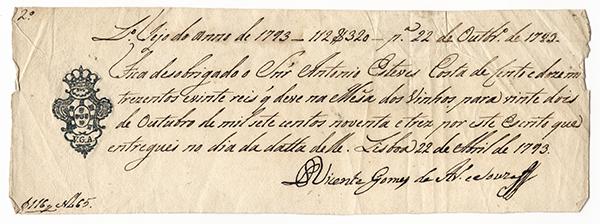 2º
Lº Vº jo do anno de 1793 — 112$320 — pª 22 de Outbrº de 1793.
Fica desobrigado o Snr Antonio Esteves Costa de sento e doze mil
trezentos e vinte reis q deve na Meza dos Vinhos para vinte dois
de Outubro de mil sete centos noventa e trez por este Escrito que
entregues no dia da datta delle. Lisboa 22 de Abril de 1793.
V.G.A.
Vicente Gomes de Alº e Souza